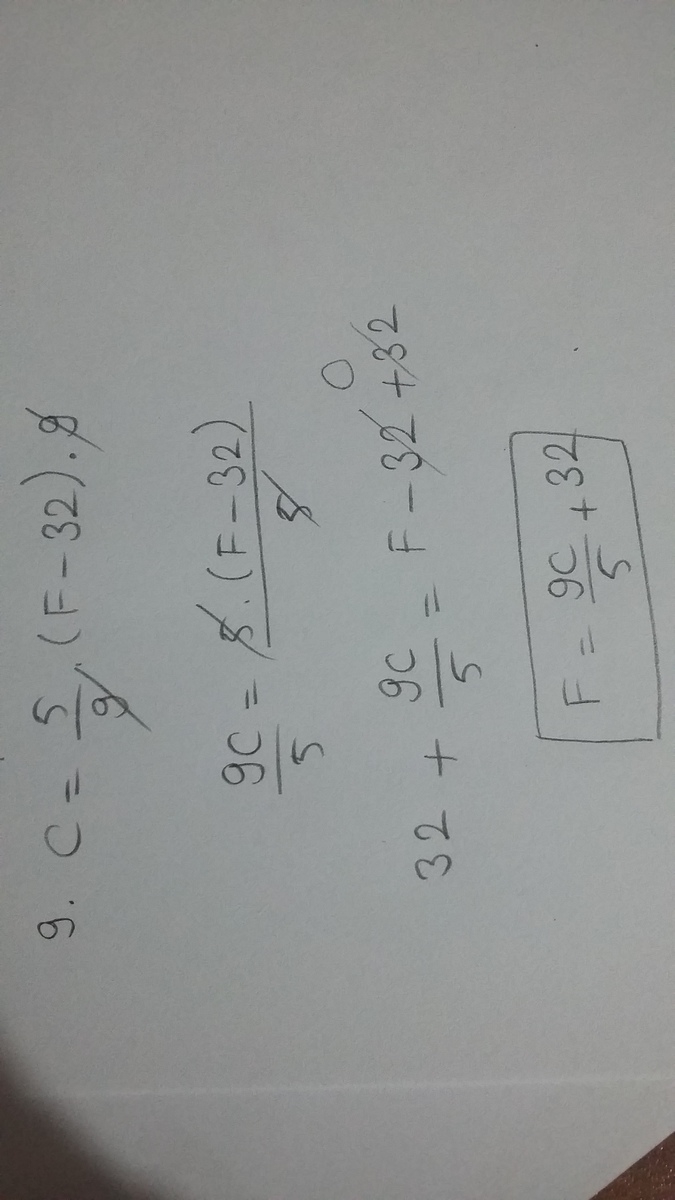 9. C = 5/9.(F-32).9
9C/5 = 5.(F-32)/5
0
32 + 9C/5 = F-32+32
F = 9C/5 + 32